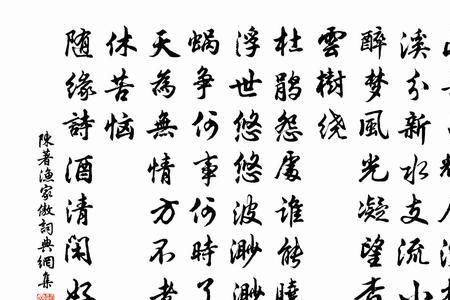 溪分新水支流小
醉梦風光凝望杳
雲樹绕
杜鹃怨處谁能曉
浮世悠悠波渺渺
蜗争何事何時了
天為無情方不老
休苦恼
随缘詩酒清闲好
陳著漁家傲詞典網集